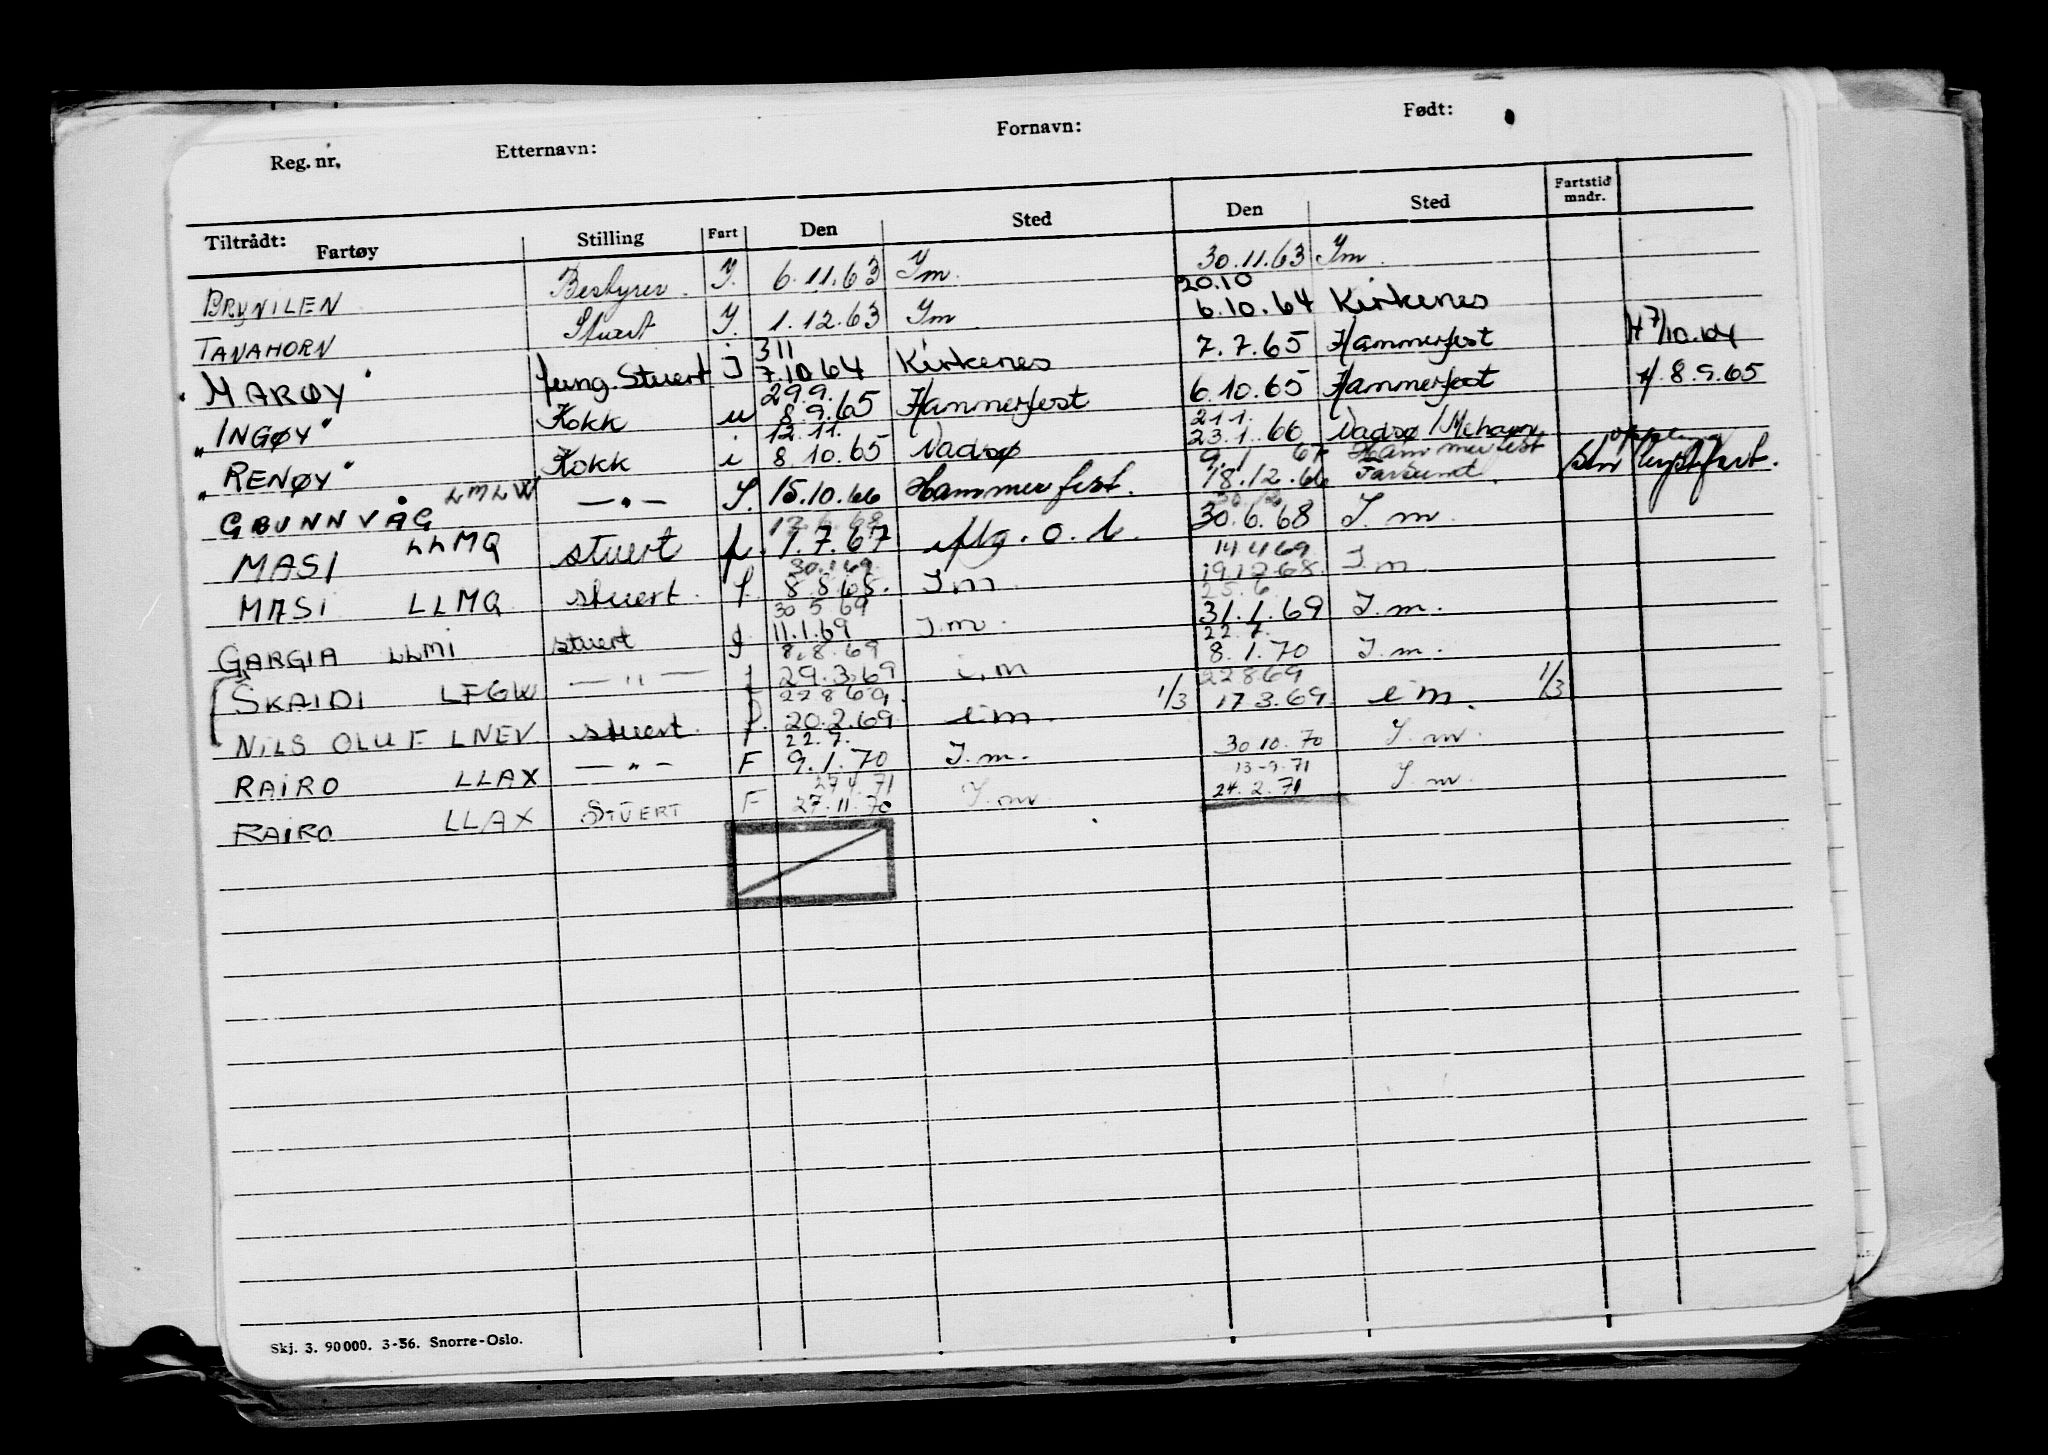 Reg. nr. Etternavn: Fornavn: Født:
Tiltrådt: Fartøy Stilling Fart Den Sted Den Sted Fartstid mndr.
BRYNILEN Bestyrer. I. 6.11.63 Im. 30.11.63 Im.
20.10
TANAHORN Stuert I. 1.12.63 Im 6.10.64 Kirkenes
3 11
"MARØY" fung. Stuert I 7.10 64 Kirkenes 7.7.65 Hammerfest H 7/10.64
29.9.
"INGØY" Kokk u 8.9.65 Hammerfest 6.10.65 Hammerfest H. 8.9.65
12.11. 21 1.
"RENØY" Kokk i 8.10.65 Vadsø 23.1.66 Vadsø / Mehamn
9 1 67 Hammerfest
GBUNNVÅG LMLW — " — S. 15.10.66 Hammerfest. 18.12.66 Farsund.
17.6.68
MASI LLMQ stuert f. 1.7.67 30.6.68 I. m.
30.1 69 14.4 69
MASI LLMQ stuert. f. 8.8.68. I.m. 19.12 68. I m.
30 5 69 25.6
GARGIA LLMI stuert f 11.1.69 I.m. 31.1.69 I. m.
8.8.69 22.7.
SKAIDI LFGW — " — f 29.3.69 i.m 8.1.70 I. m.
22 8 69. 22869
NILS OLUF LNEV stuert. f. 20.2.69 im. 1/3 17 3.69. i m. 1/3
22.7.
RAIRO LLAX — " — F 9.1.70 I.m. 30 10.70 I. m.
27 4.71 13-9.71
RAIRO LLAX STUERT F 27.11.70 I. m. 24.2.71 I. m.
Skj. 3. 90000. 3-56. Snorre-Oslo.